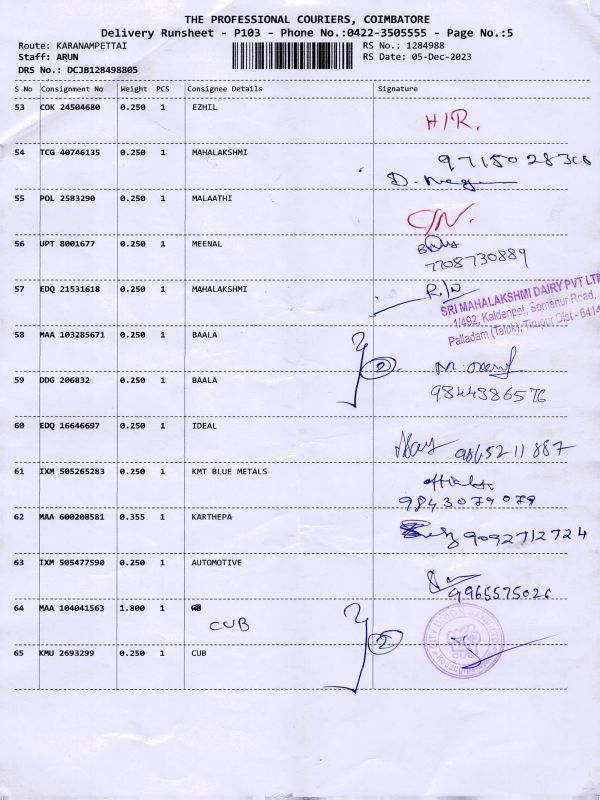 THE PROFESSIONAL COURIERS, COIMBATORE
Delivery Runsheet - P103 - Phone No.:0422-3505555 - Page No.:5
Route: KARANAMPETTAI RS No.: 1284988
Staff: ARUN RS Date: 05-Dec-2023
DRS No.: DCJB128498805
S No Consignment No Weight PCS Consignee Details Signature
53 COK 24504680 0.250 1 EZHIL
H/R.
54 TCG 40746135 0.250 1 MAHALAKSHMI
9715028308
55 POL 2583290 0.250 1 MALAATHI
56 UPT 8001677 0.250 1 MEENAL
7708730889
57 EDQ 21531618 0.250 1 MAHALAKSHMI
SRI MAHALAKSHMI DAIRY PVT LTD
1/492, Kaldenpet, Somanur Road,
Palladam (Taluk), Tirupur Dist - 6414
58 MAA 103285671 0.250 1 BAALA
2
59 DDG 206832 0.250 1 BAALA
9844386576
60 EDQ 16646697 0.250 1 IDEAL
9865211887
61 IXM 505265283 0.250 1 KMT BLUE METALS
9843079079
62 MAA 600208581 0.355 1 KARTHEPA
9092712724
63 IXM 505477590 0.250 1 AUTOMOTIVE
9965575026
64 MAA 104041563 1.800 1
CUB
2
CUB
65 KMU 2693299 0.250 1 CUB